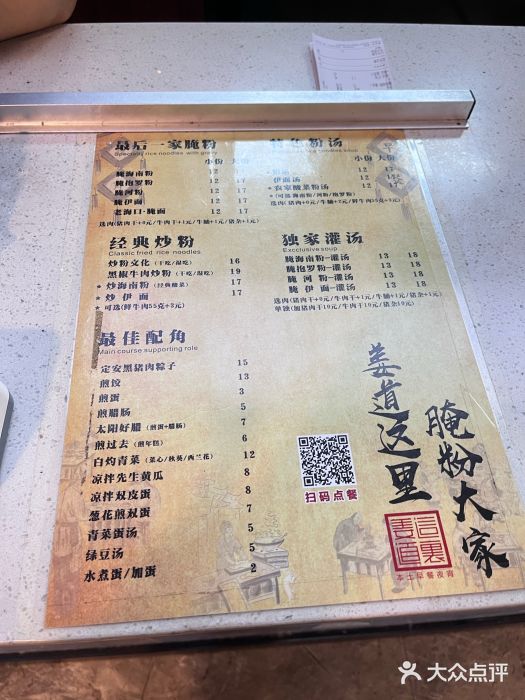 最后一家腌粉
Specialty rice noodles with gravy
小份 大份
腌海南粉 12 17
腌抱罗粉 12 17
腌河粉 12 17
腌伊面 12 17
老海口·腌面 12 17
选肉(猪肉干+0元/牛肉干+1元/牛腩+1元/猪杂+1元)
特色粉汤
小份 大份
12 17
伊面汤 12 17
★农家酸菜粉汤 12 17
(可选/海南粉/河粉/抱罗粉)
经典炒粉
Classic fried rice noodles
炒粉文化(干吃/湿吃) 16
黑椒牛肉炒粉(干吃/湿吃) 19
★炒海南粉(经典酸菜) 17
★炒伊面 17
★可选(鲜牛肉55克+3元)
独家灌汤
Excclusive soup
腌海南粉-灌汤 13 18
腌抱罗粉-灌汤 13 18
腌河粉-灌汤 13 18
腌伊面-灌汤 13 18
选肉(猪肉干+0元/牛肉干+1元/牛腩+1元/猪杂+1元)
单独(加猪肉干10元/牛肉干10元/猪杂10元)
最佳配角
Main course supporting role
定安黑猪肉粽子 15
煎饺 13
煎蛋 3
煎腊肠 5
太阳好腊(煎蛋+腊肠) 7
煎过去(煎年糕) 6
白灼青菜(菜心/秋葵/西兰花) 12
凉拌先生黄瓜 8
凉拌双皮蛋 8
葱花煎双蛋 7
青菜蛋汤 5
绿豆汤 5
水煮蛋/加蛋 2
扫码点餐
姜道这里
腌粉大家
姜道這裏
本土早餐夜宵
大众点评